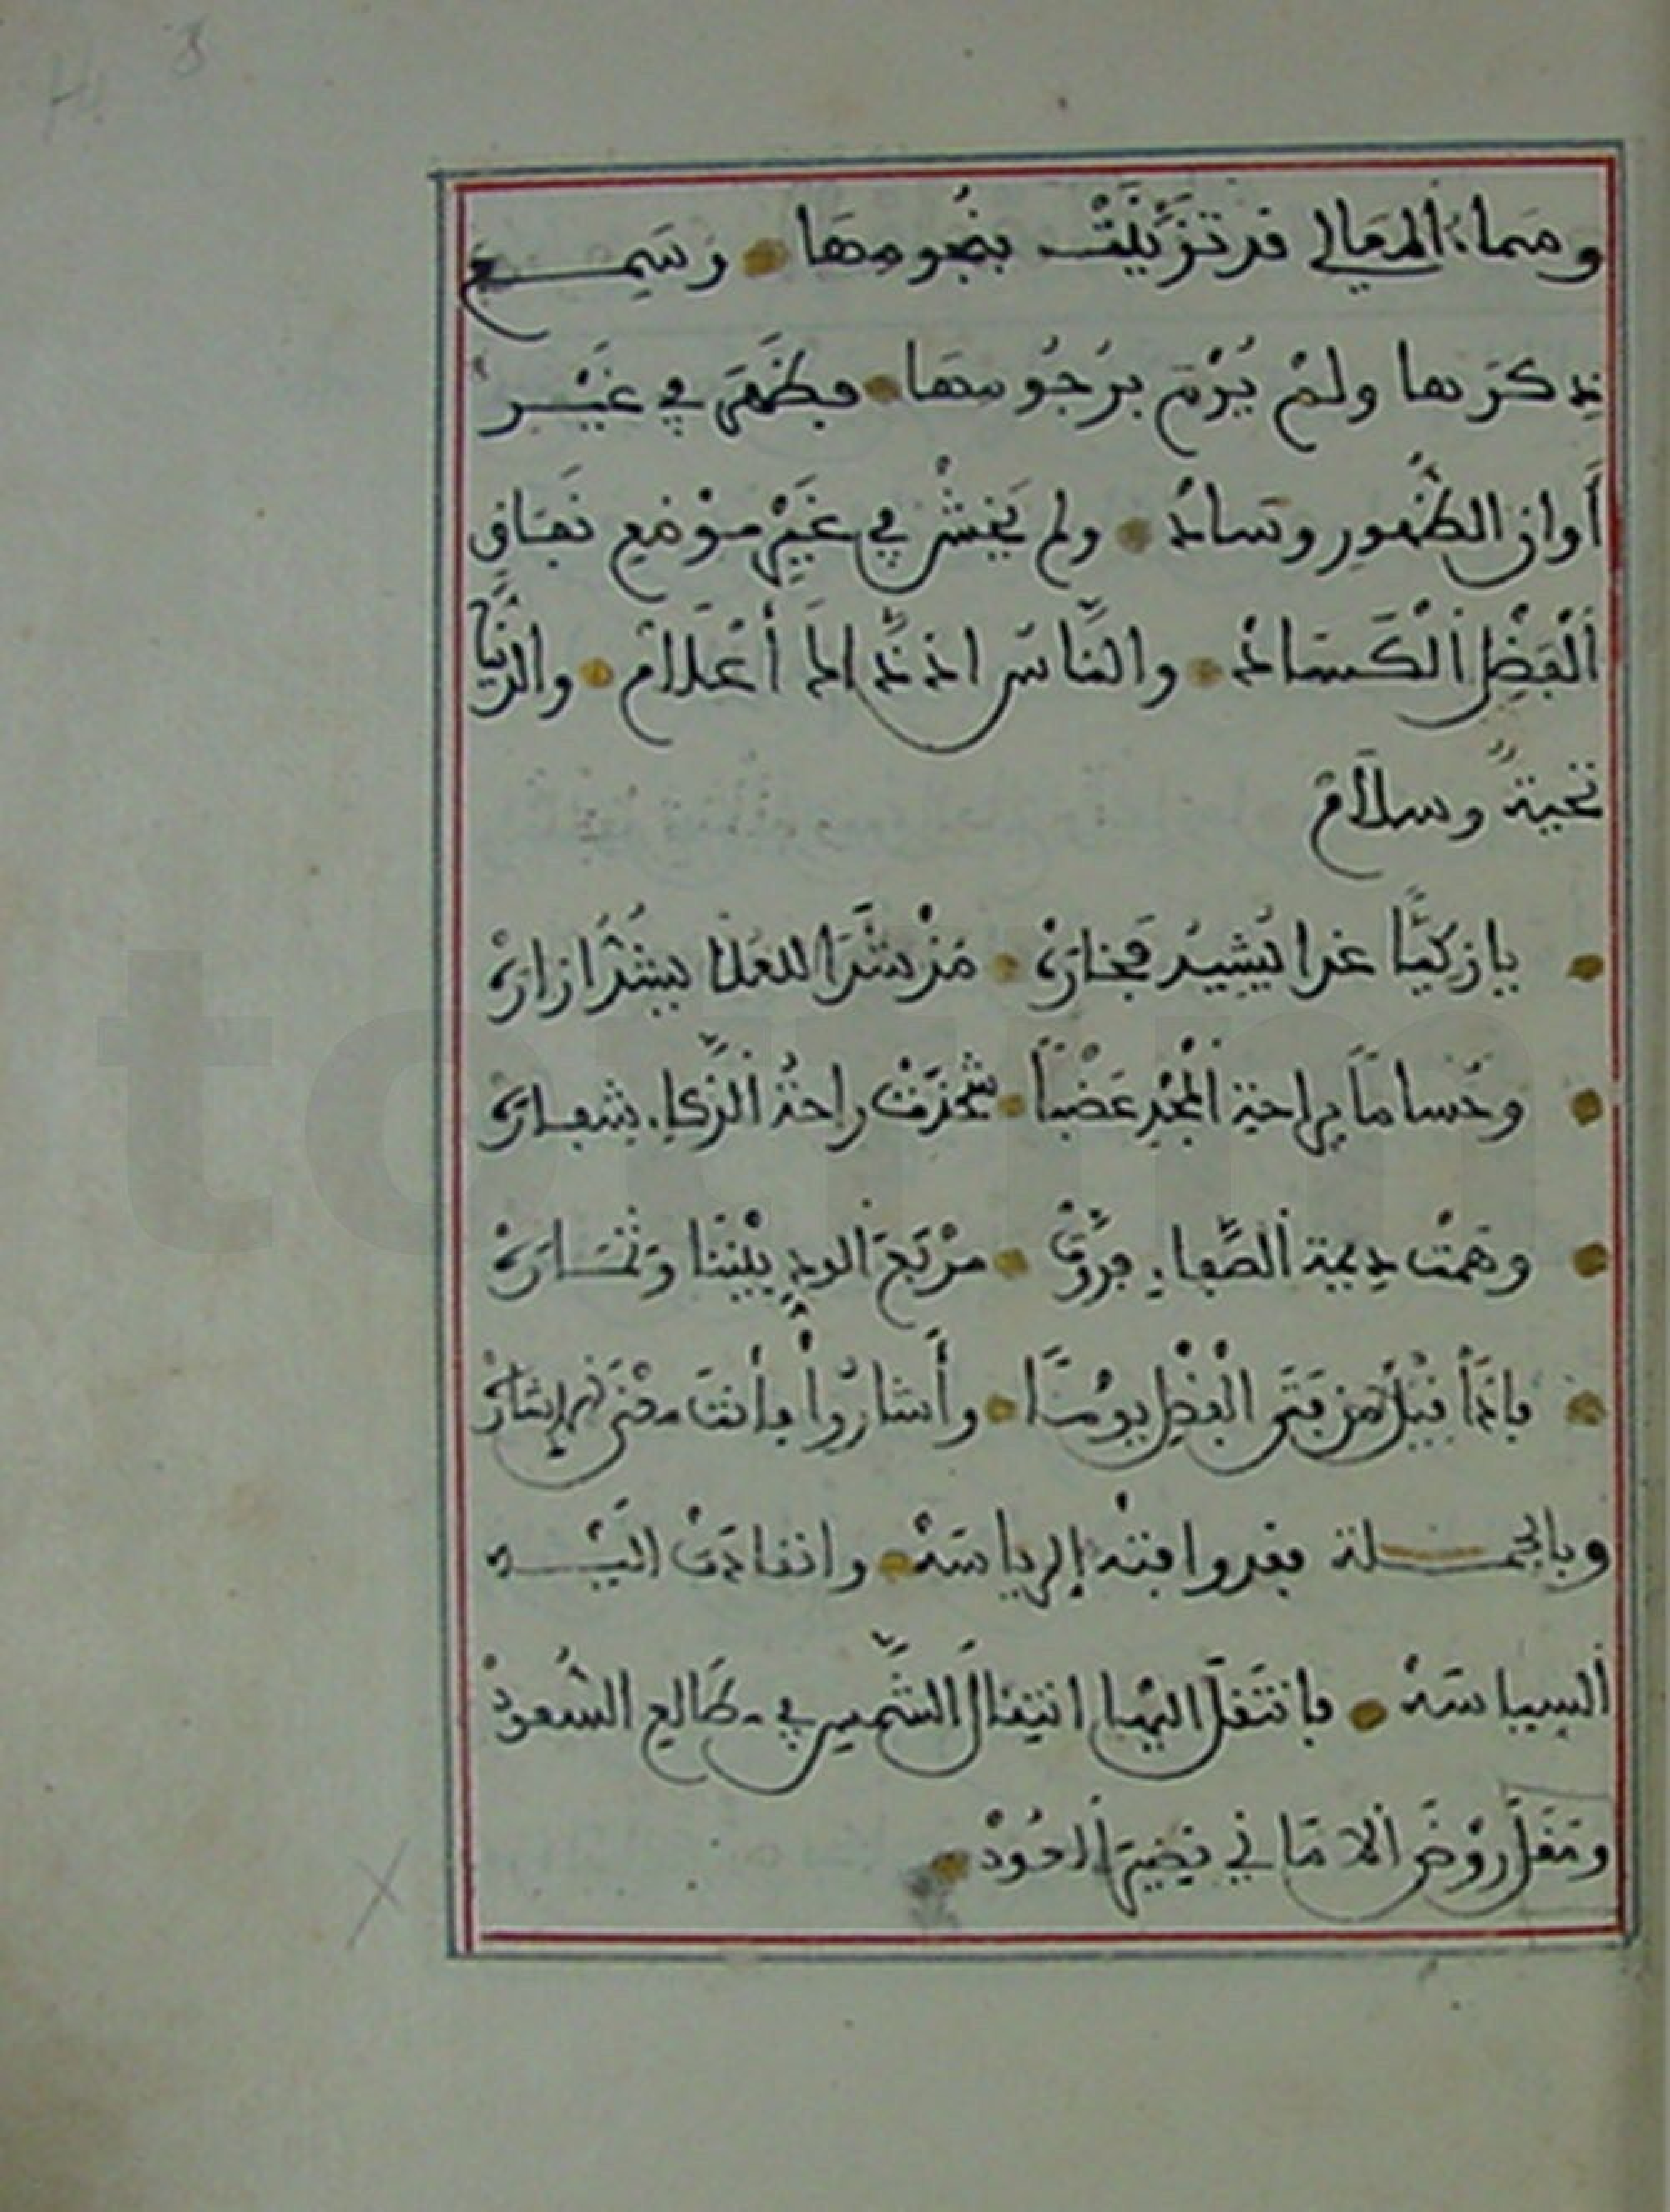 وسماء المعالي قد تزينت بنجومها وسمع
بذكرها ولم يرم برجومها فظهر في غير
أوان الظهور وساد ولم يخش في غير موضع نفاق
الفضل الكساد والناس اذ ذاك أعلام والدنيا
تحية وسلام
يا زكيا غدا يشيد فخاره من شرا للعلا بيشد ازاره
وحساما براحة المجد عضبا شحذت راحة الذكاء شفاره
وهمت ديمة الصفاء فروى مربع الود بيننا وثماره
فاذا قيل من فتى الفضل يوما وأشاروا فأنت معنى الإشاره
وبالجملة فقدوا فيه الرياسة وانقادت اليه
السياسة فانتقل اليها انتقال الشمس في طالع السعود
وتنقل روض الاماني نضير العود